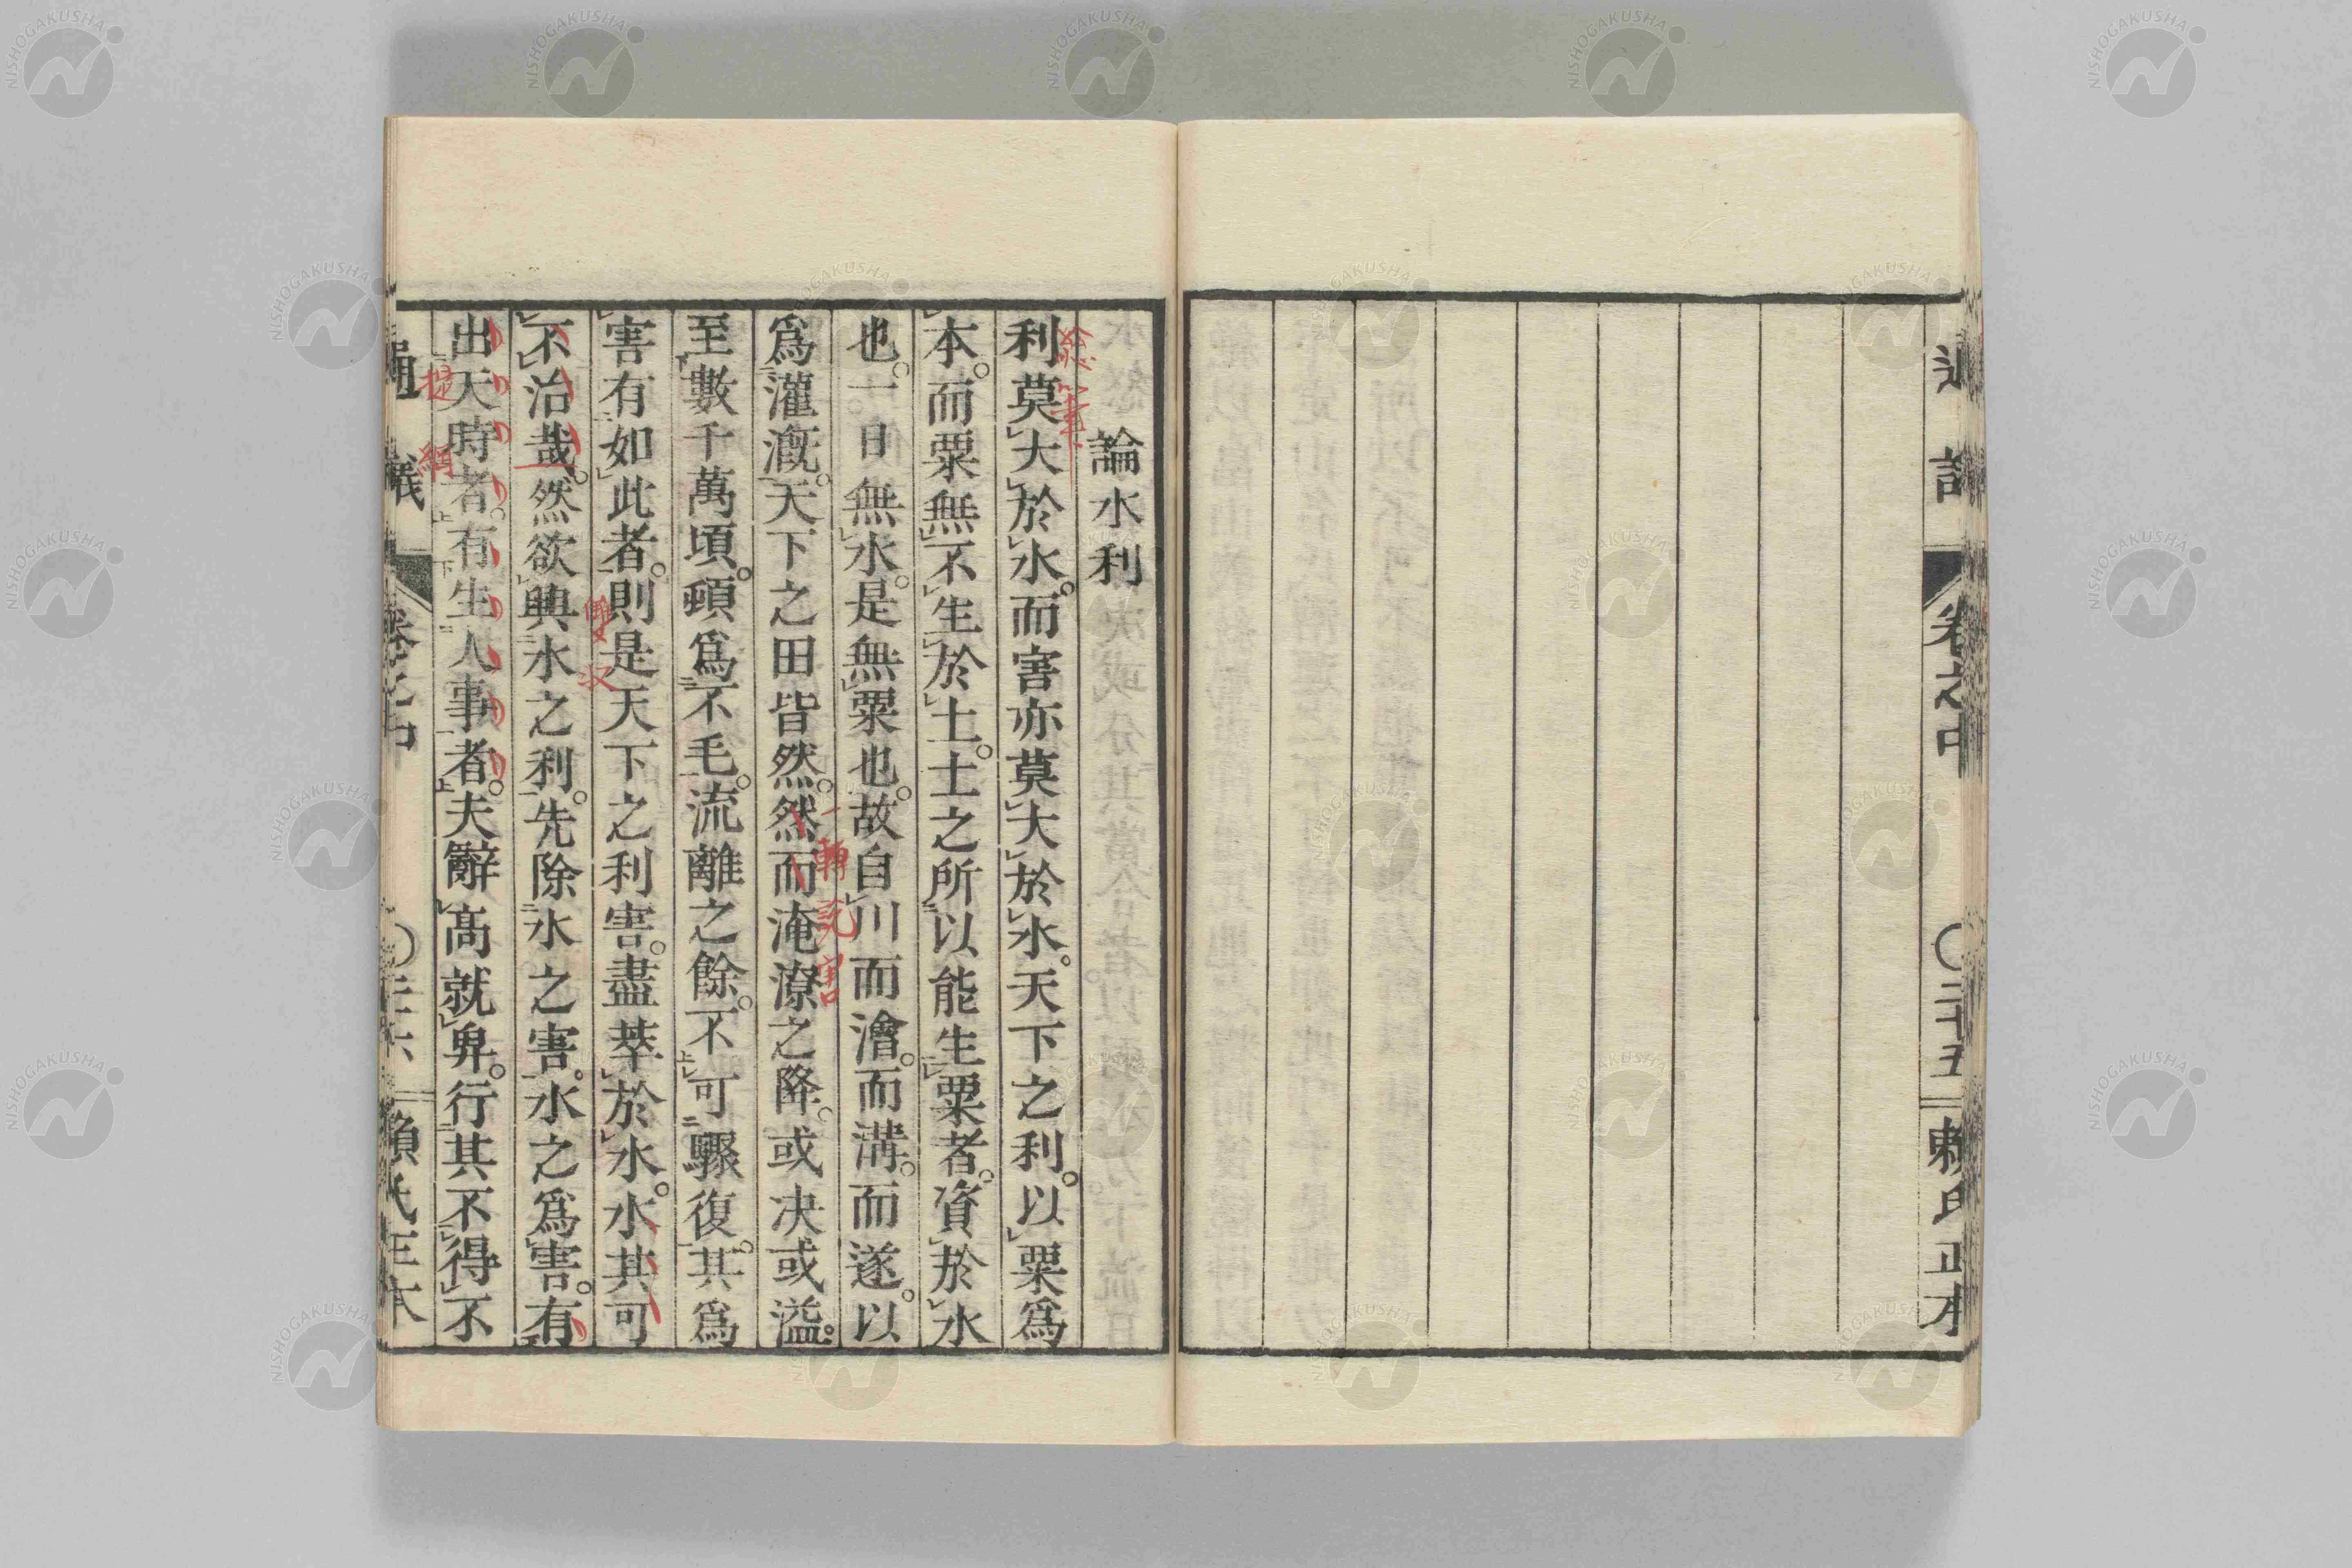 通議
卷之中
〇二十五
賴氏正本
論水利
利莫大於水。而害亦莫大於水。天下之利。以粟爲
本。而粟無不生於土。土之所以能生粟者。資於水
也。一日無水。是無粟也。故自川而澮。而溝。而遂。以
爲灌漑。天下之田皆然。然而淹潦之降。或決或溢。
至數千萬頃。頓爲不毛。流離之餘。不可驟復。其爲
害有如此者。則是天下之利害。盡萃於水。水其可
不治哉。然欲興水之利。先除水之害。水之爲害。有
出天時者。有生人事者。夫辭高就卑。行其不得不
總筆
一轉說害
雙收
提綱
通議
卷之中
〇二十六
賴氏正本
NISHOGAKUSHA